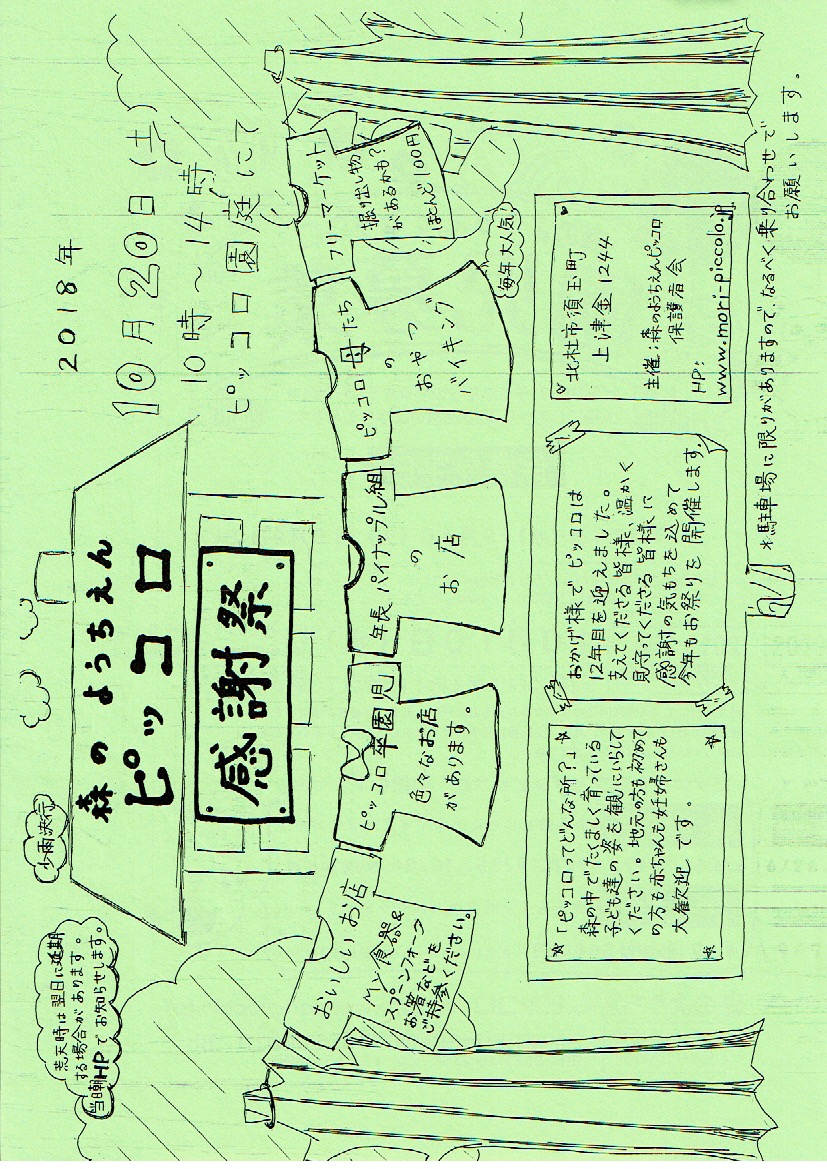 荒天時は翌日に延期
する場合があります。
当日朝HPでお知らせします。
少雨決行
森のようちえん
ピッコロ
感謝祭
2018年
10月20日(土)
10時～14時
ピッコロ園庭にて
おいしいお店
My食器&
スプーンフォーク
お箸などを
ご持参ください。
ピッコロ卒園児
色々なお店
があります。
年長 パイナップル組
の
お店
ピッコロ母たち
の
おやつ
バイキング
フリーマーケット
掘り出し物
があるかも?
ほとんど100円
毎年大人気!
「ピッコロってどんな所?」
森の中でたくましく育っている
子ども達の姿を観にいらして
ください。地元の方も初めて
の方も赤ちゃんも妊婦さんも
大歓迎です。
おかげ様でピッコロは
12年目を迎えました。
支えてくださる皆様、温かく
見守ってくださる皆様に
感謝の気もちを込めて
今年もお祭りを開催します。
北杜市須玉町
上津金1244
主催:森のようちえんピッコロ
保護者会
HP:
www.mori-piccolo.jp
*駐車場に限りがありますので、なるべく乗り合わせで
お願いします。